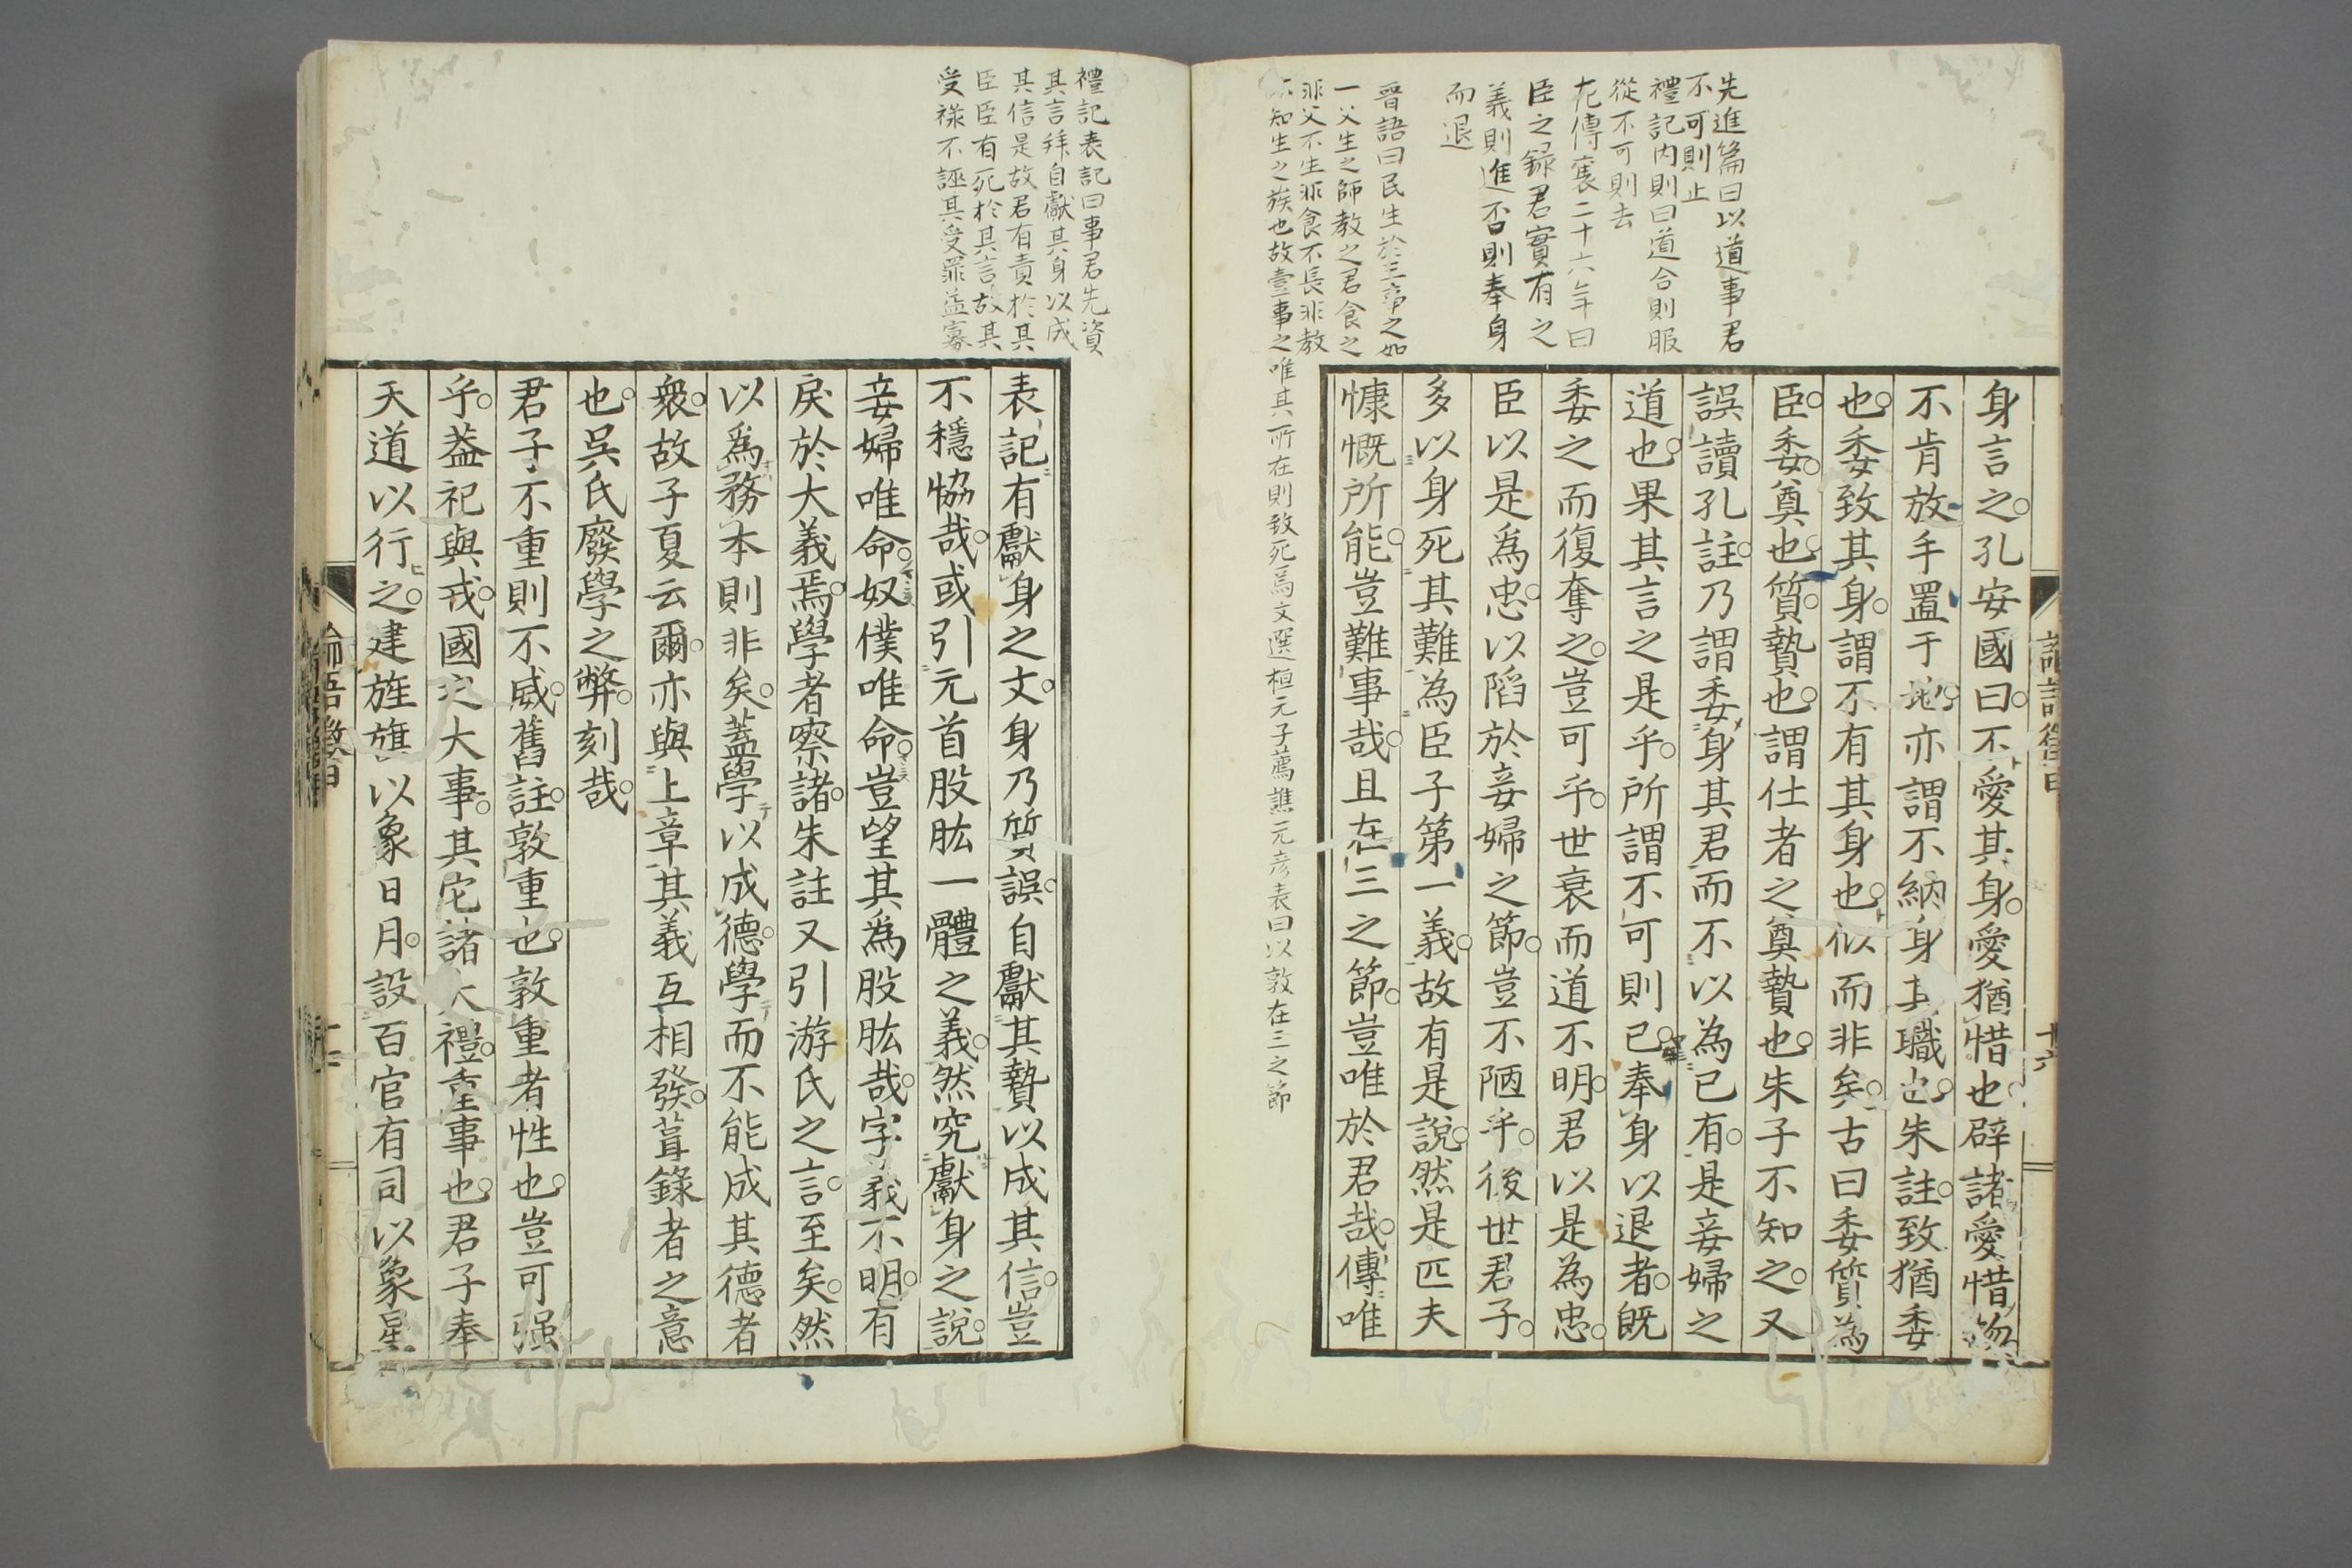 先進篇曰以道事君
不可則止
禮記内則曰道合則服
從不可則去
左傳襄二十六年曰
臣之祿君實有之
義則進否則奉身
而退
晉語曰民生於三事之如
一父生之師教之君食之
非父不生非食不長非教
不知生之族也故壹事之唯其所在則致死焉文選桓元子薦譙元彦表曰以敦在三之節
身言之孔安國曰不愛其身愛猶惜也辟諸愛惜物
不肯放手置于地亦謂不納身其職也朱註致猶委
也委致其身謂不有其身也似而非矣古曰委質為
臣委奠也質贄也謂仕者之奠贄也朱子不知之又
誤讀孔註乃謂委身其君而不以為已有是妾婦之
道也果其言之是乎所謂不可則已奉身以退者既
委之而復奪之豈可乎世衰而道不明君以是為忠
臣以是爲忠以陷於妾婦之節豈不陋乎後世君子
多以身死其難為臣子第一義故有是說然是匹夫
慷慨所能豈難事哉且在三之節豈唯於君哉傳唯
論語徵甲
十六
禮記表記曰事君先資
其言拜自獻其身以成
其信是故君有責於其
臣臣有死於其言故其
受祿不誣其受罪益寡
表記有獻身之文身乃質誤自獻其贄以成其信豈
不穩恊哉或引元首股肱一體之義然究獻身之說
妾婦唯命奴僕唯命豈望其爲股肱哉字義不明有
戾於大義焉學者察諸朱註又引游氏之言至矣然
以爲務本則非矣蓋學以成德學而不能成其德者
衆故子夏云爾亦與上章其義互相發葺錄者之意
也吳氏廢學之弊刻哉
君子不重則不威舊註敦重也敦重者性也豈可强
乎葢祀與戎國之大事其它諸大禮重事也君子奉
天道以行之建旌旗以象日月設百官有司以象星